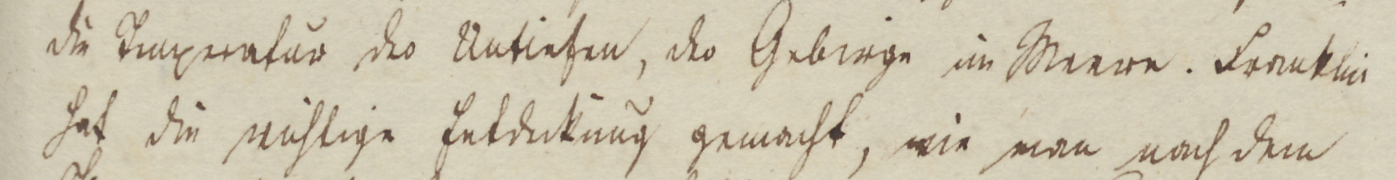 die Temperatur der Untiefen, der Gebirge im Meere. Franklin
hat die wichtige Entdeckung gemacht, wie man nach dem